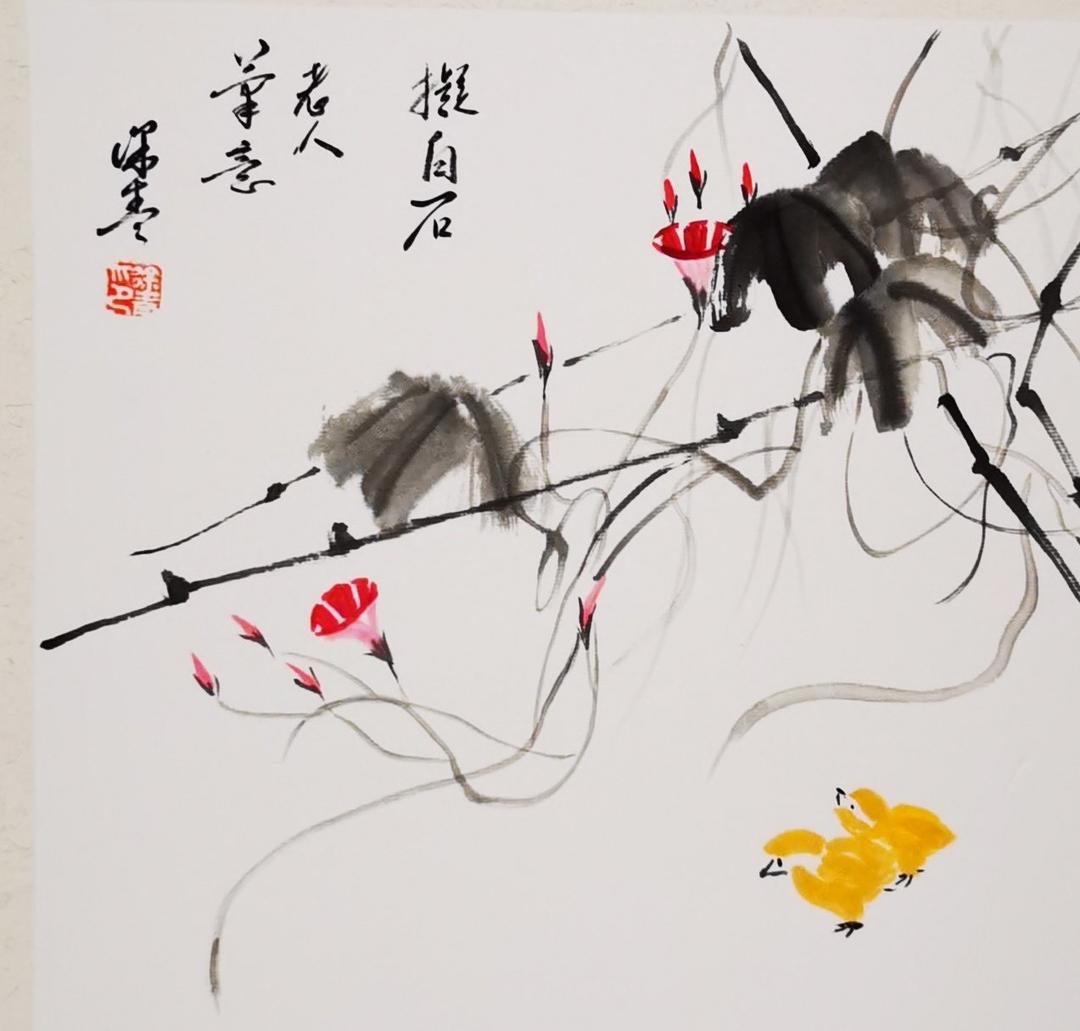 擬白石
老人
筆意